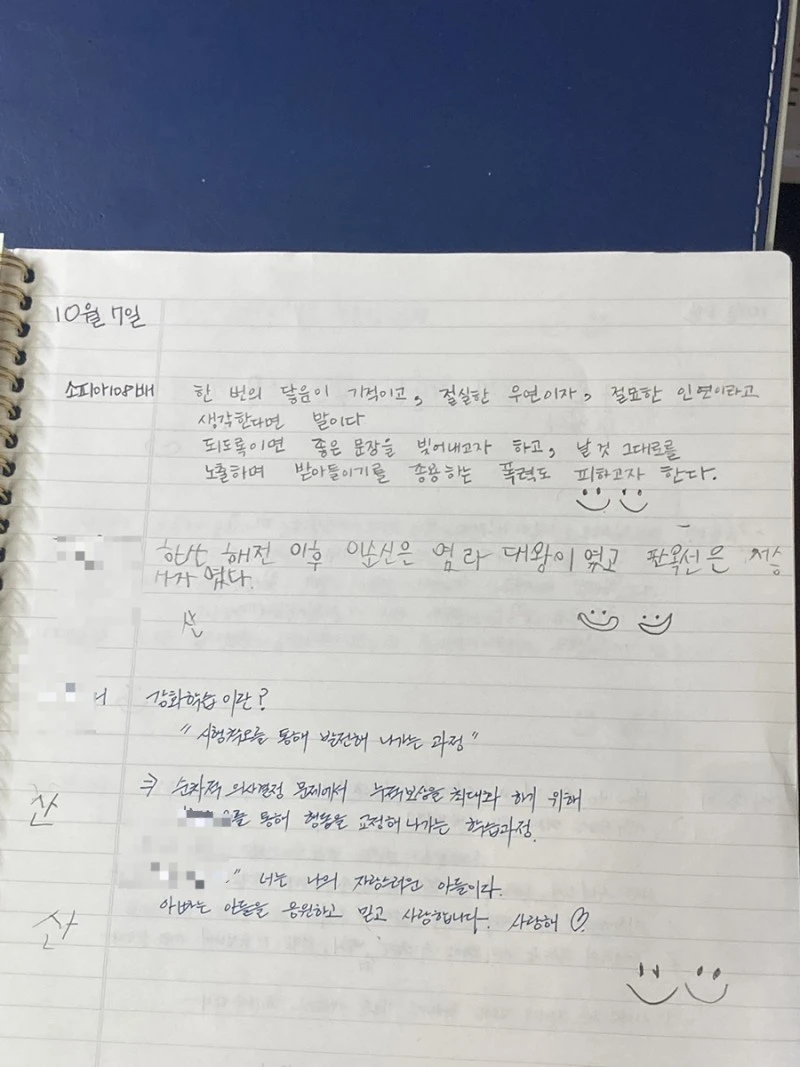 10월 7일
소피아108배 한 번의 닿음이 기적이고, 절실한 우연이자, 절묘한 인연이라고
생각한다면 말이다
되도록이면 좋은 문장을 빚어내고자 하고, 날 것 그대로를
노출하며 받아들이기를 종용하는 폭력도 피하고자 한다.
한산 해전 이후 이순신은 염라 대왕이 였고 판옥선은 저승
사자 였다.
산
강화학습이란?
"시행착오를 통해 발전해 나가는 과정"
⇒ 순차적 의사결정 문제에서 누적보상을 최대화 하기 위해
찬 를 통해 행동을 교정해 나가는 학습과정.
." 너는 나의 자랑스러운 아들이다.
산 아빠는 아들을 응원하고 믿고 사랑합니다. 사랑해